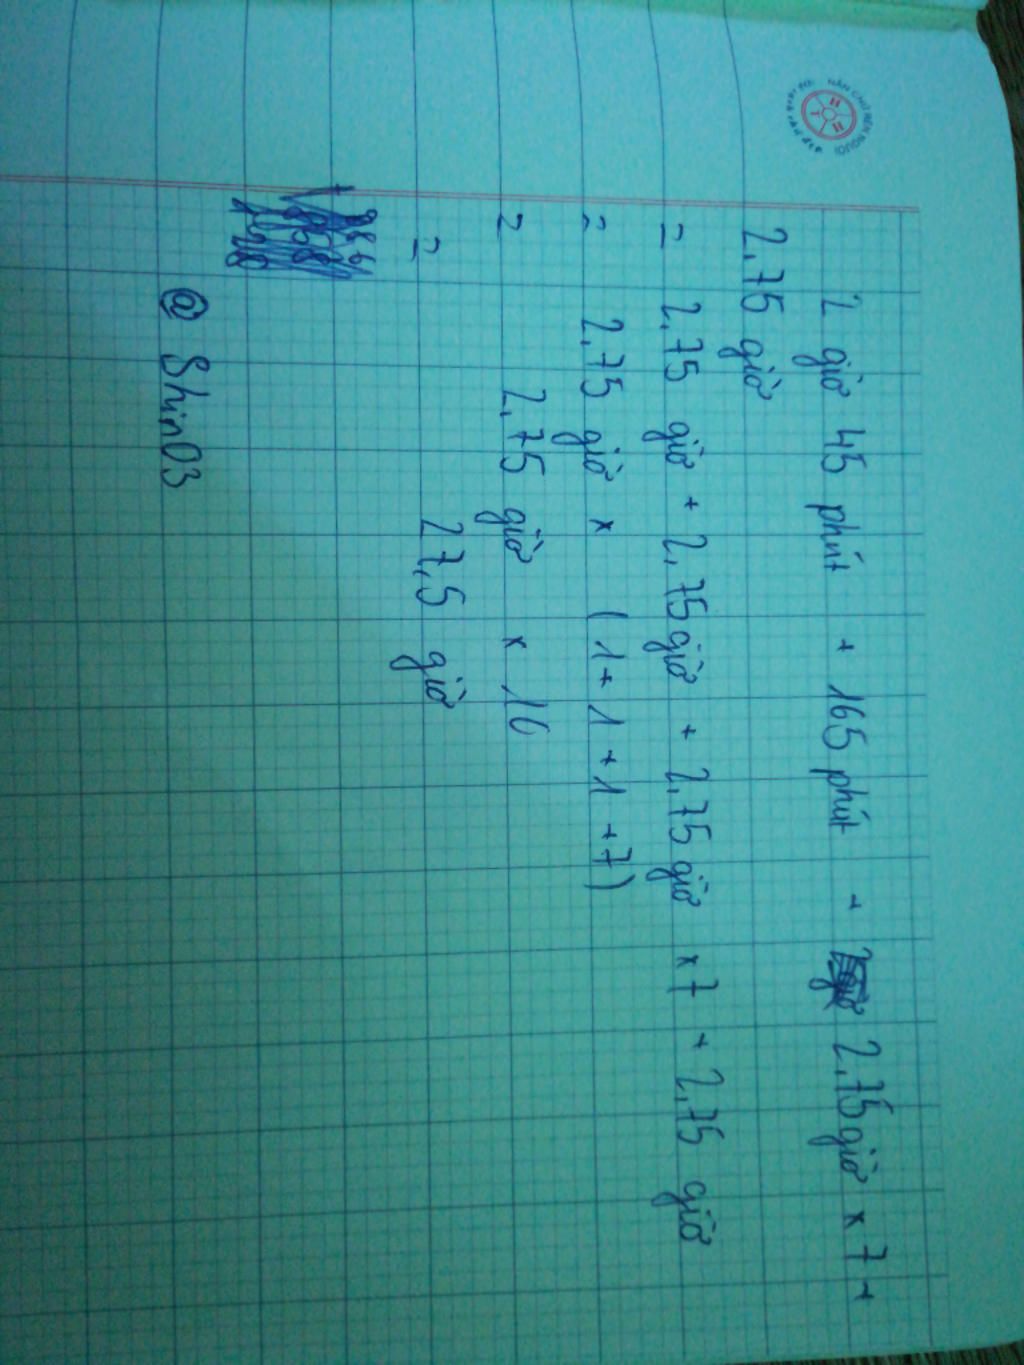 2 giờ 45 phút + 165 phút + 2,75 giờ x 7 +
2,75 giờ
= 2,75 giờ + 2,75 giờ + 2,75 giờ x 7 + 2,75 giờ
= 2,75 giờ x ( 1 + 1 + 1 + 7 )
= 2,75 giờ x 10
= 27,5 giờ
@ Shin03